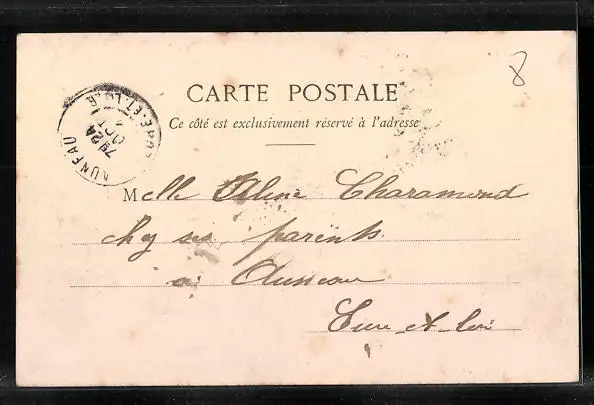 8
CARTE POSTALE
Ce côté est exclusivement réservé à l'adresse
AUNEAU
EURE-ET-LOIR
OCT
Melle Aline Charamond
chez ses parents
à Auneau
Eure et Loir